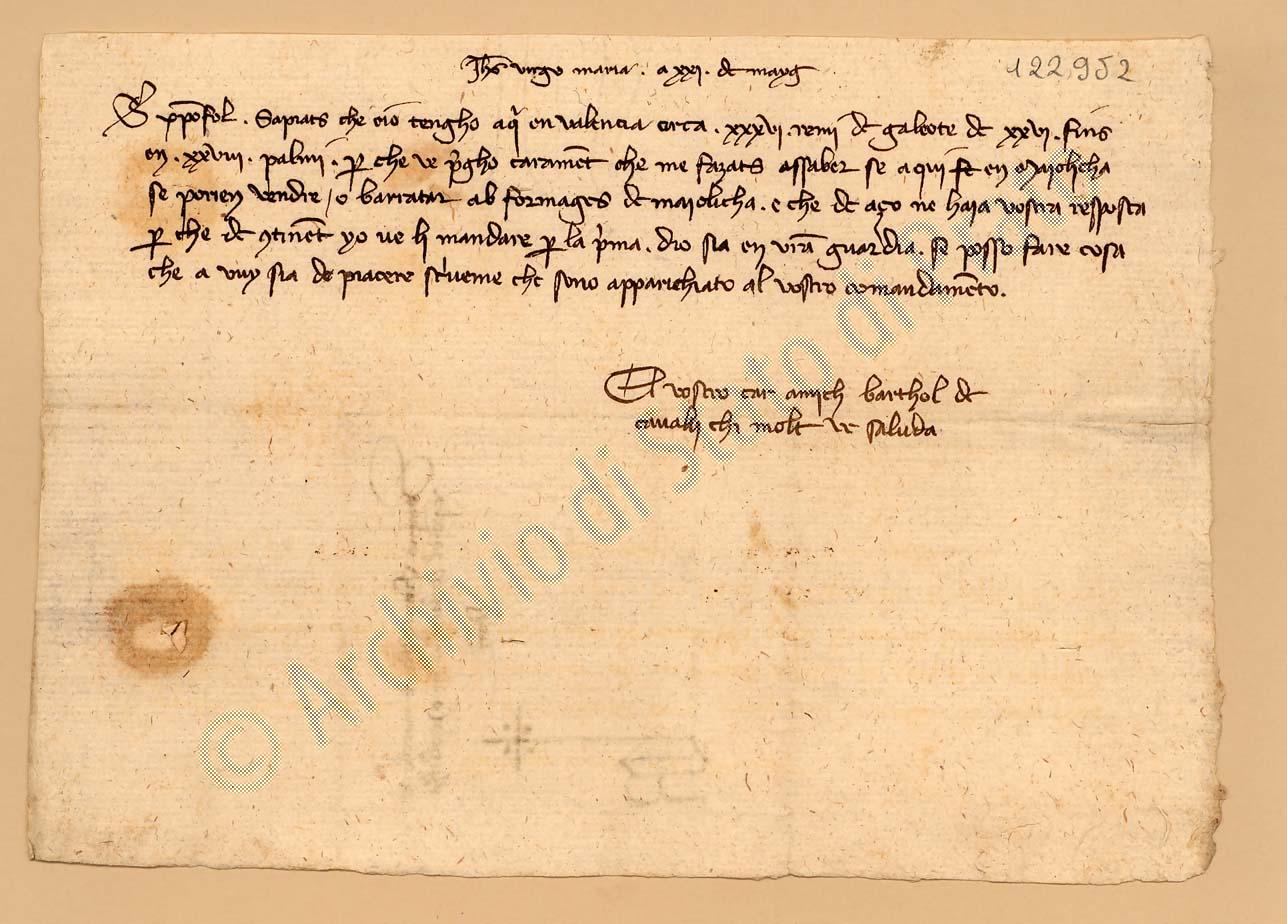 Jhs virgo maria . a xxi . de mayg
122952
En xpofol . Sapiats che eio tengho aqi en valencia circa . xxxvi . remi de galeote de xxvi . fins
en . xxviii . palmi . per che ve pgho carament che me fazats assaber se aqui en Maiolicha
se porien vendre / o barratar ab formages de maiolicha . e che de aço ne haia vostra resposta
per che de continent yo ve li mandare per la pma . dio sia en vra guardia . se posso fare cosa
che a vuy sia de piacere scriveme che sono apparichiato al vostro comandamento .
El vostro car amich barthol de
cavalli chi molt ve saluda
© Archivio di Stato di